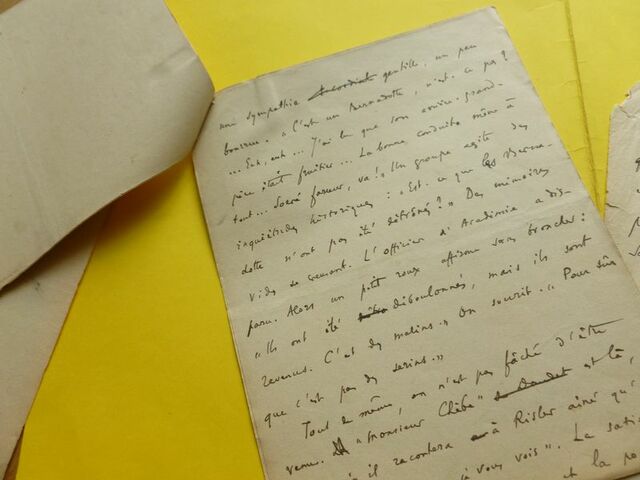 une sympathie cordiale gentille, un peu
bourrue. « C'est un Bernadotte, n'est-ce pas ?
... Euh, euh ... J'ai lu que son arrière-grand-
père était fruitier ... La bonne conduite mène à
tout ... Sacré farceur, va ! » Un groupe agite des
inquiétudes historiques : « Est-ce que les Berna-
dotte n'ont pas été détrônés ? » Des mémoires
vides se creusent. L'officier d'Académie a dis-
paru. Alors un petit roux affirme sans broncher :
« Ils ont été déboulonnés, mais ils sont
revenus. C'est des malins. » On sourit. « Pour sûr
que c'est pas des serins. »
Tout de même, on n'est pas fâché d'être
venu. "Monsieur Chèbe" de Daudet est là,
il racontera à Risler aîné qu'
à vous vois". La satis
et la po